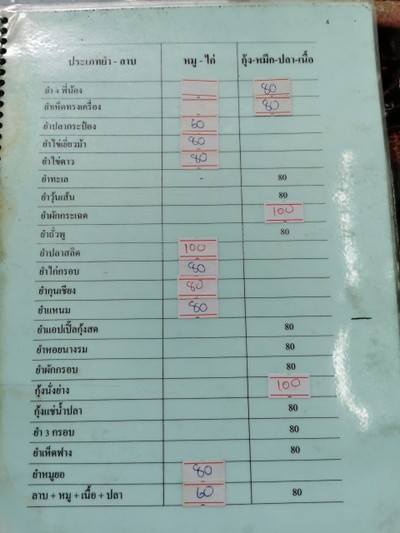 4
ประเภทยำ - ลาบ หมู - ไก่ กุ้ง-หมึก-ปลา-เนื้อ
ยำ 4 พี่น้อง 80
ยำเห็ดทรงเครื่อง - 80
ยำปลากระป๋อง 60
ยำไข่เยี่ยวม้า 80
ยำไข่ดาว 80
ยำทะเล - 80
ยำวุ้นเส้น 80
ยำผักกระเฉด 100
ยำถั่วพู 80
ยำปลาสลิด 100
ยำไก่กรอบ 80
ยำกุนเชียง 80
ยำแหนม 80
ยำแอปเปิ้ลกุ้งสด 80
ยำหอยนางรม 80
ยำผักกรอบ 80
กุ้งนั่งย่าง 100
กุ้งแช่น้ำปลา 80
ยำ 3 กรอบ 80
ยำเห็ดฟาง 80
ยำหมูยอ 80
ลาบ + หมู + เนื้อ + ปลา 60 80